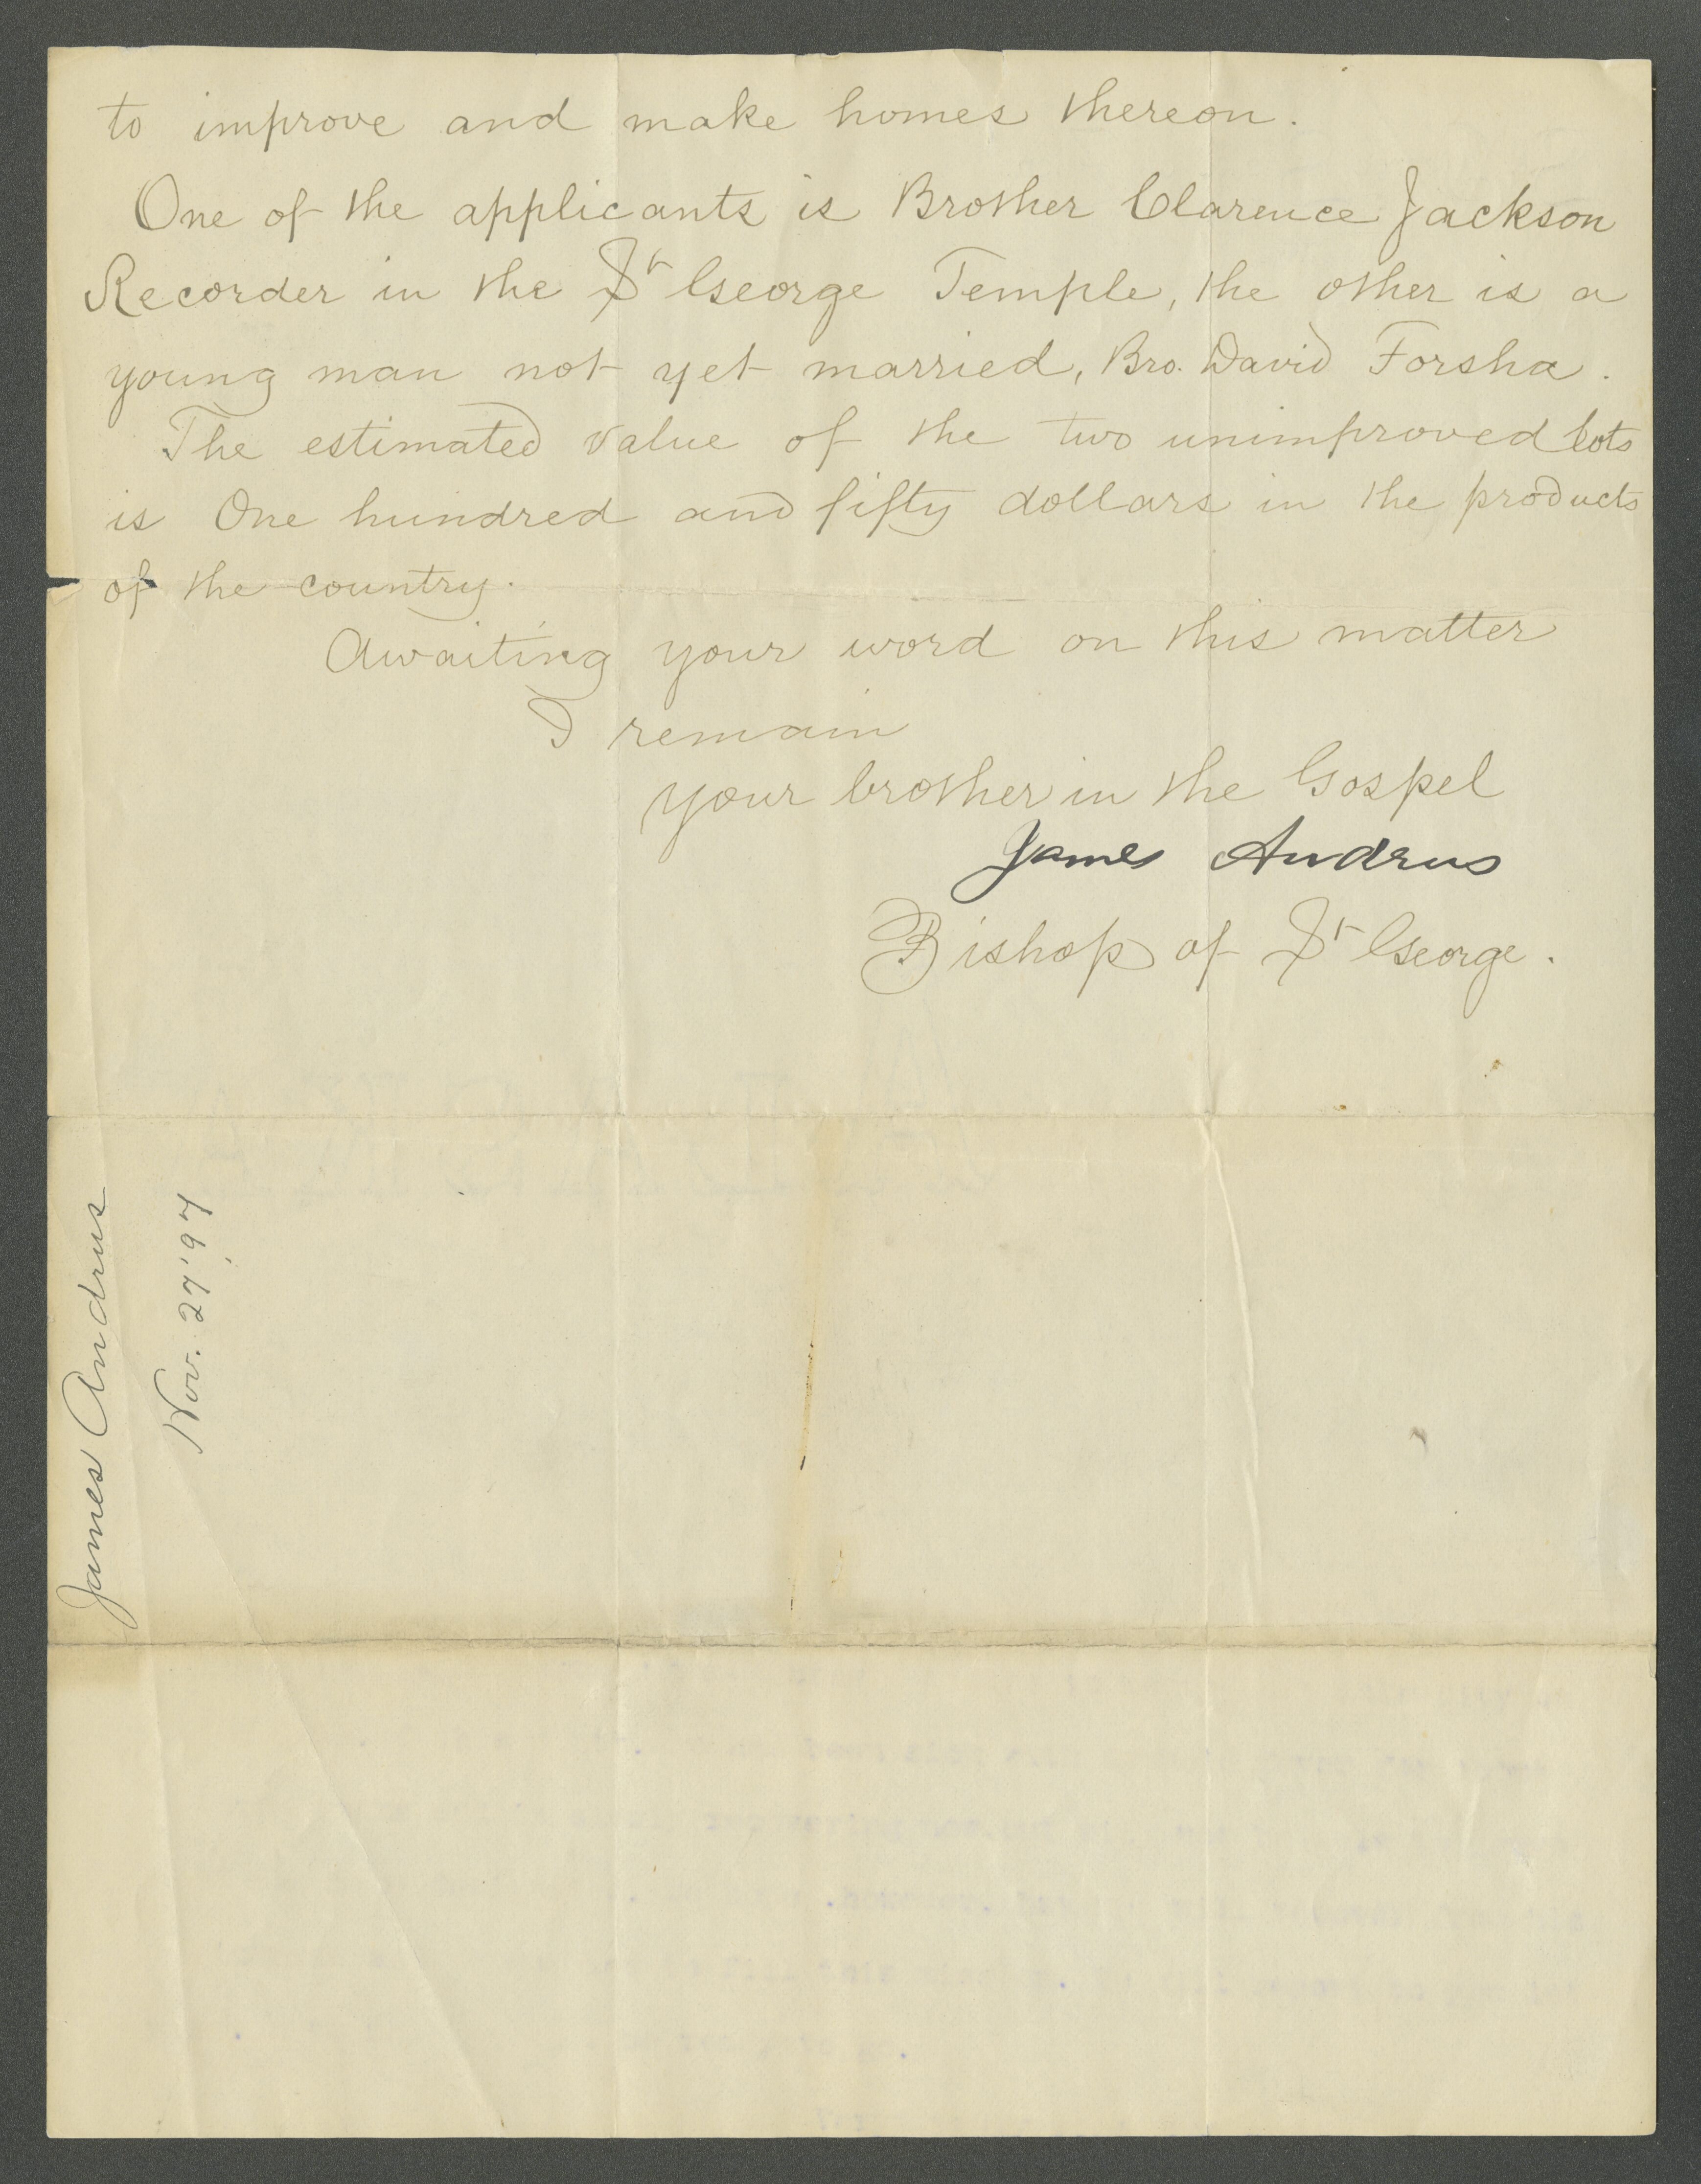 to improve and make homes thereon.
One of the applicants is Brother Clarence Jackson
Recorder in the St George Temple, the other is a
young man not yet married, Bro. David Forsha.
The estimated value of the two unimproved lots
is One hundred and fifty dollars in the products
of the country.
Awaiting your word on this matter
I remain
your brother in the Gospel
James Andrus
Bishop of St George.
James Andrus
Nov. 27, '97